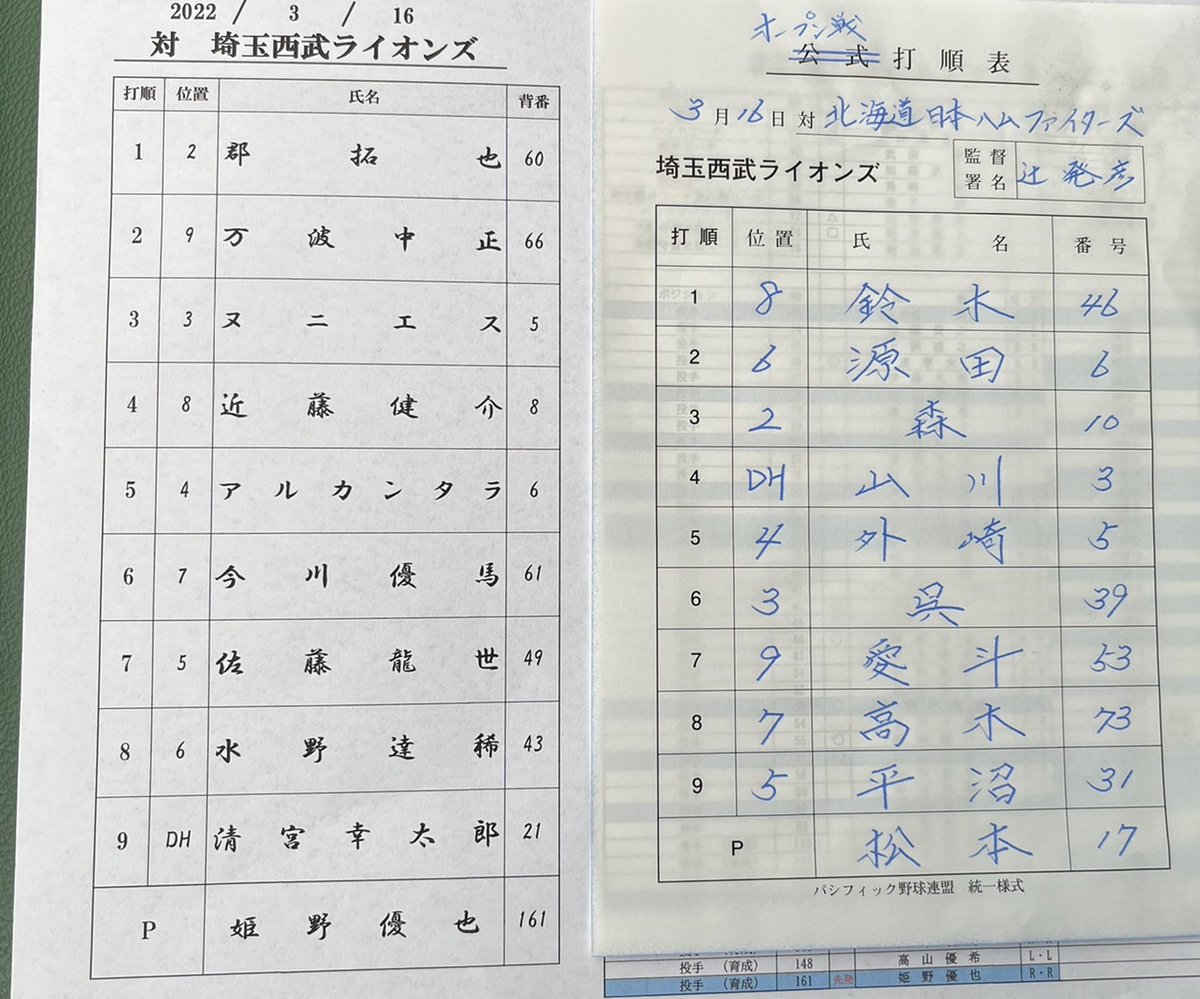 2022 / 3 / 16
対 埼玉西武ライオンズ
打順 位置 氏名 背番
1 2 郡拓也 60
2 9 万波中正 66
3 3 ヌニエス 5
4 8 近藤健介 8
5 4 アルカンタラ 6
6 7 今川優馬 61
7 5 佐藤龍世 49
8 6 水野達稀 43
9 DH 清宮幸太郎 21
P 姫野優也 161
オープン戦
公式打順表
3月16日対 北海道日本ハムファイターズ
埼玉西武ライオンズ 監督署名 辻発彦
打順 位置 氏名 番号
1 8 鈴木 46
2 6 源田 6
3 2 森 10
4 DH 山川 3
5 4 外崎 5
6 3 呉 39
7 9 愛斗 53
8 7 高木 73
9 5 平沼 31
P 松本 17
パシフィック野球連盟 統一様式
投手 (育成) 148 高山優希 L・L
投手 (育成) 161 先発 姫野優也 R・R